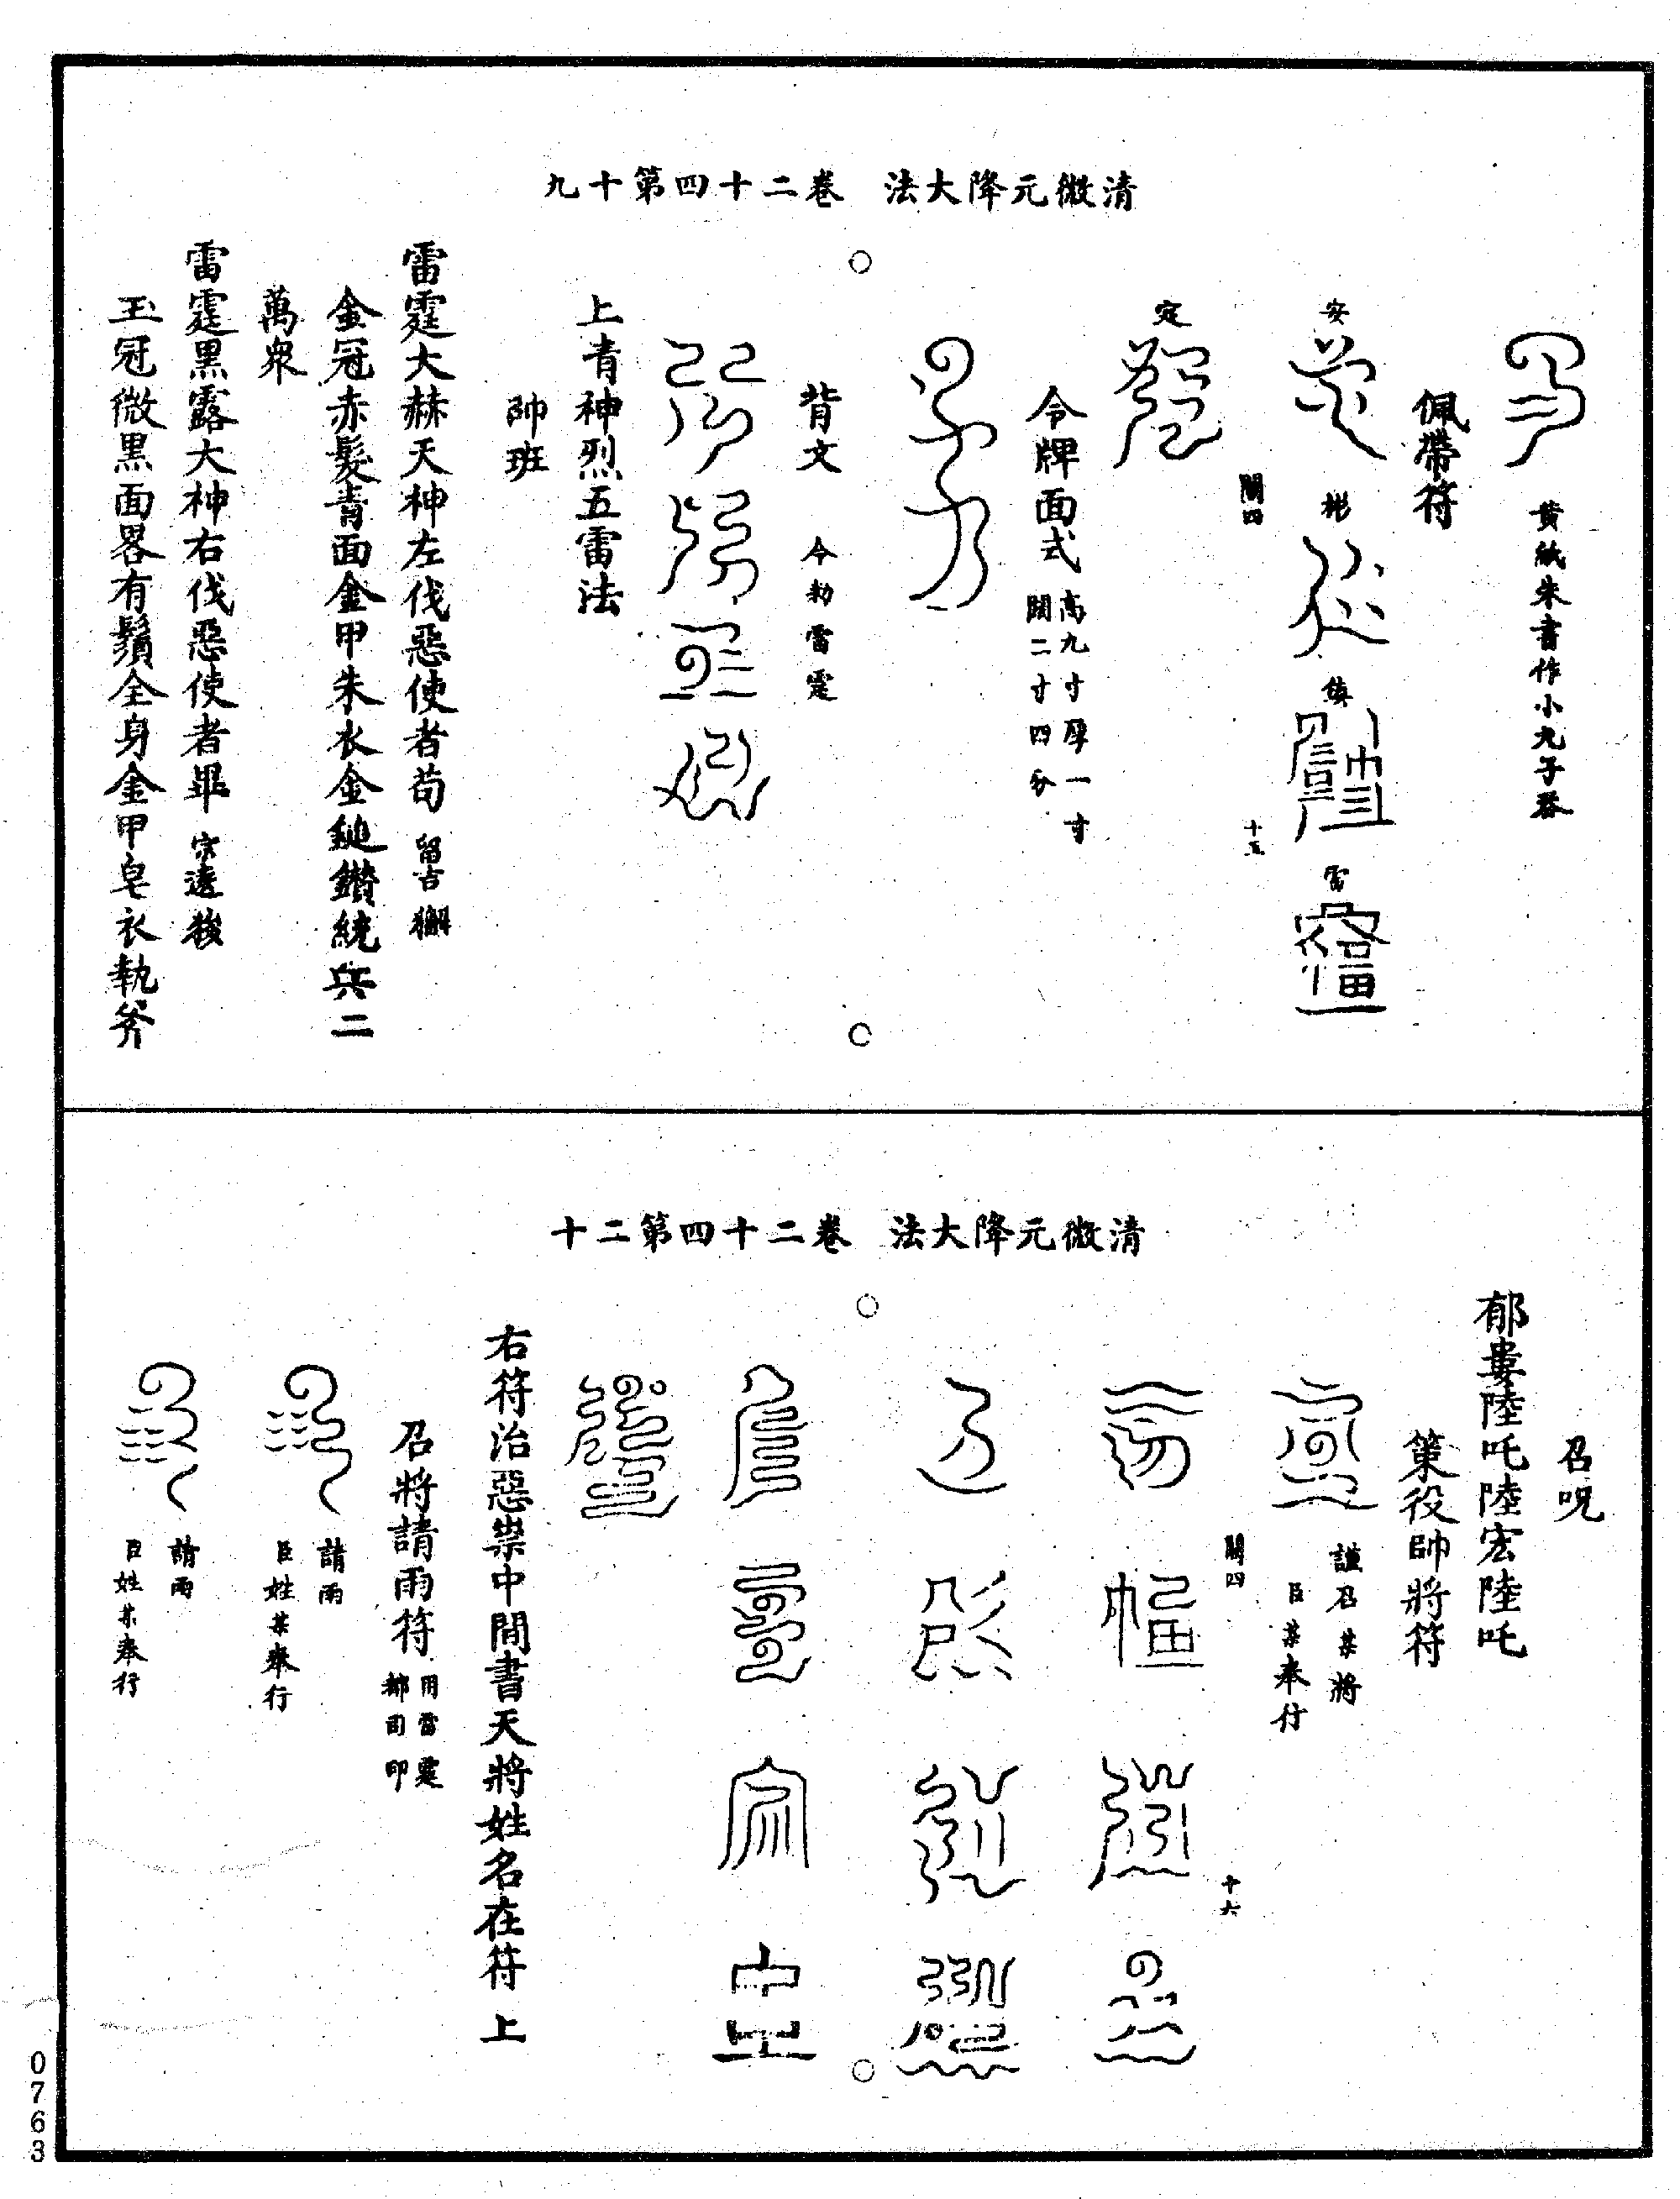 清微元降大法 卷二十四第十九
黃紙朱書作小丸子吞
佩帶符
安
彬
鎮
雷
關四
十五
定
令牌面式 高九寸厚一寸
闊二寸四分
背文 令勑雷霆
上青神烈五雷法
帥班
雷霆大赫天神左伐惡使者苟 留吉
金冠赤髮青面金甲朱衣金鎚鑽統兵二
萬衆
雷霆黑露大神右伐惡使者畢 宗遠
玉冠微黑面畧有鬚全身金甲皂衣執斧
清微元降大法 卷二十四第二十
召呪
郁婁陸吒陸宏陸吒
策役帥將符
謹召某將
臣某奉行
關四
十六
右符治惡祟中間書天將姓名在符上
召將請雨符 用雷霆
都司印
請雨
臣姓某奉行
請雨
臣姓某奉行
0763